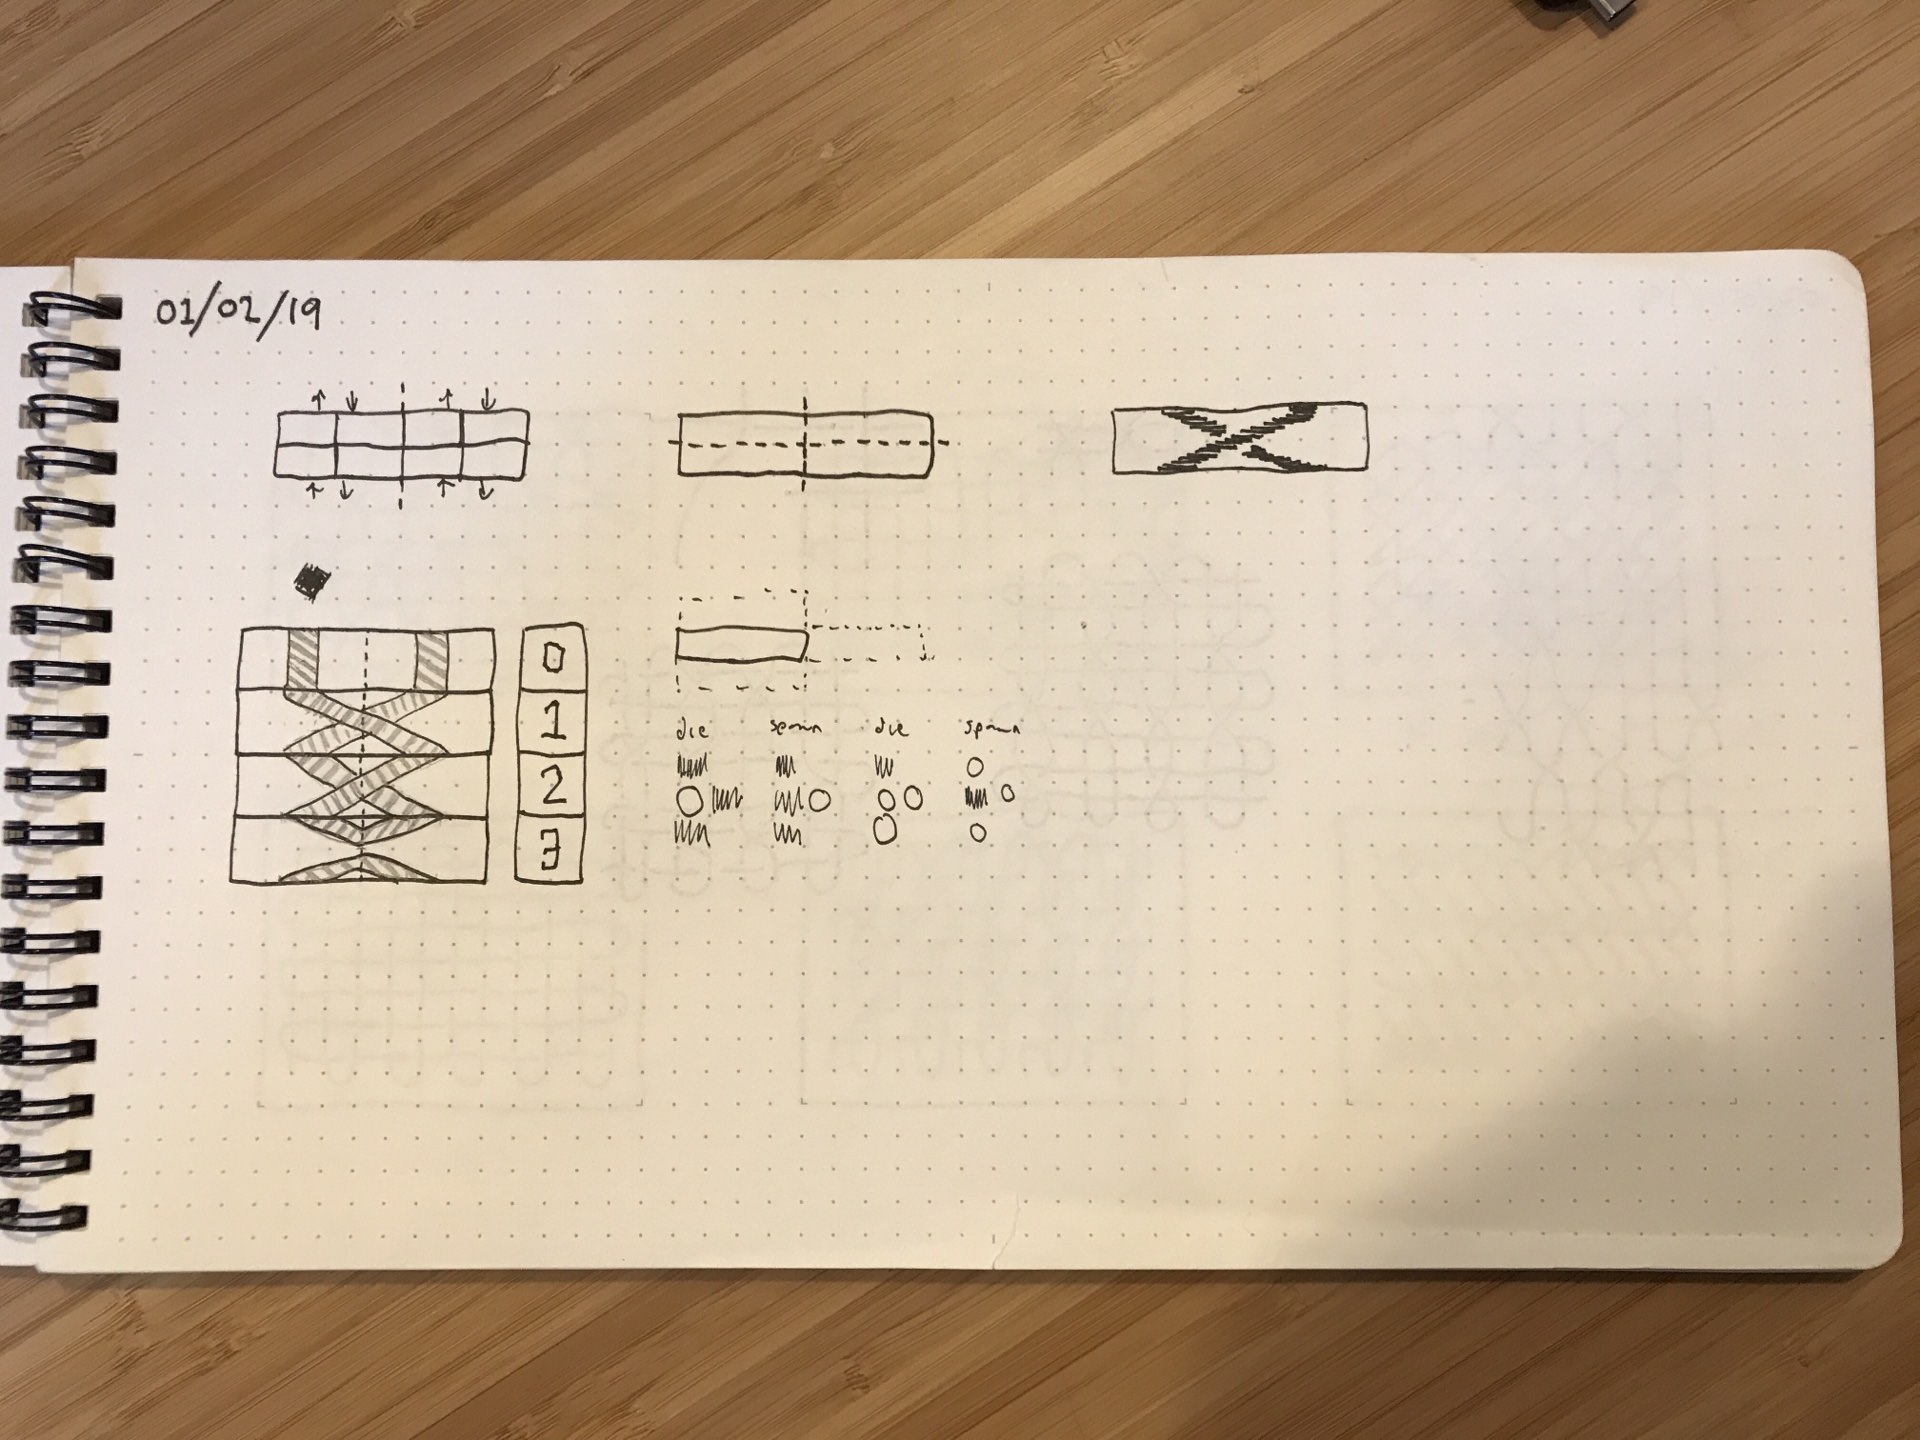 01/02/19
0
1
2
3
die spawn die spawn